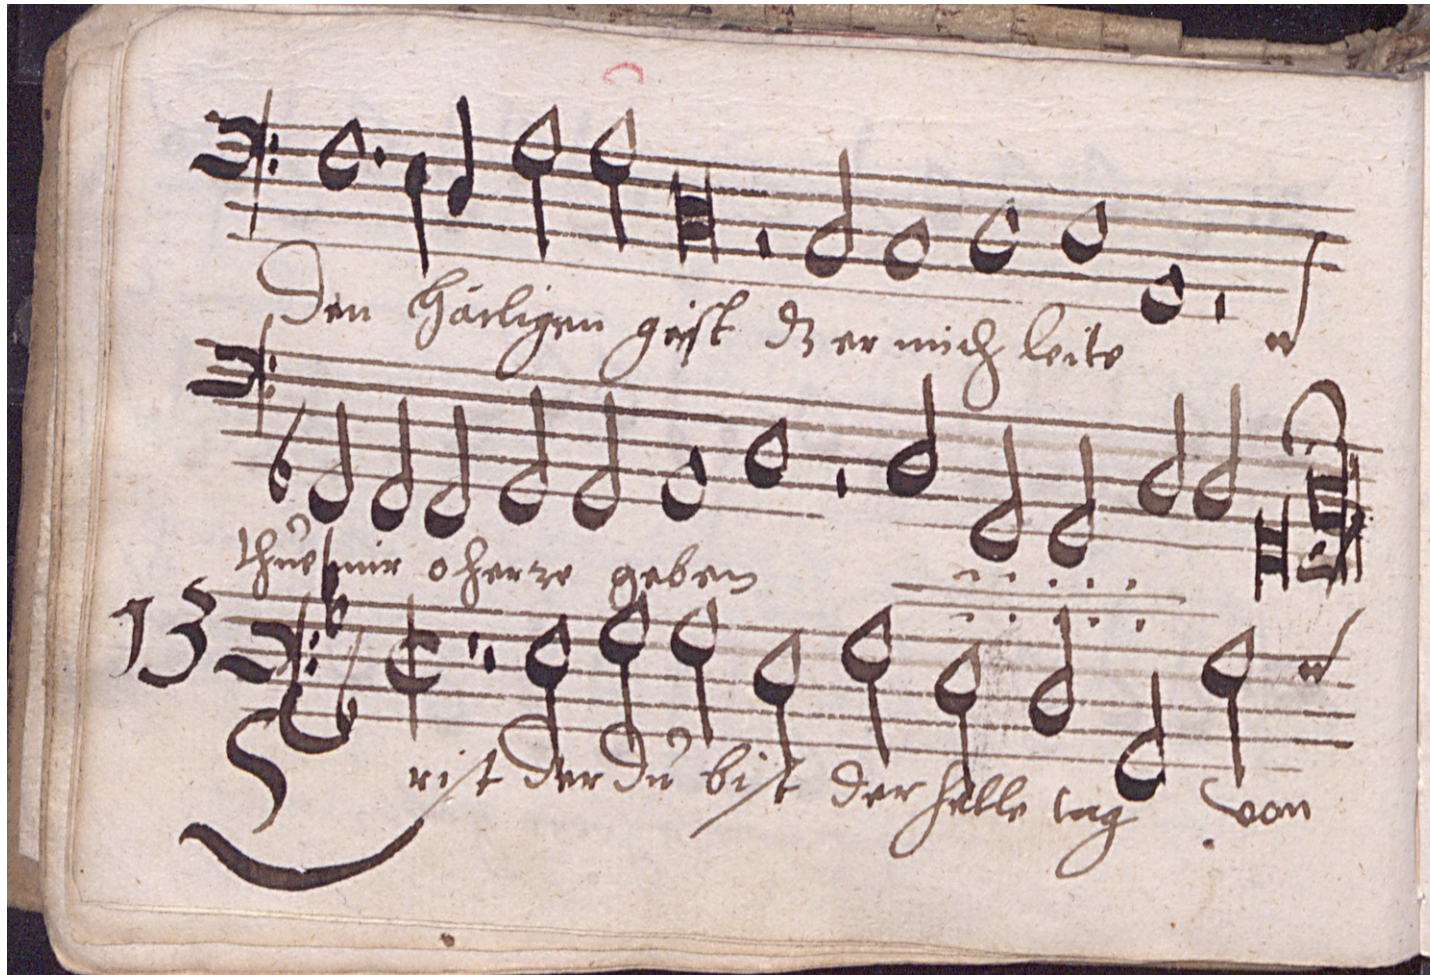 Den hailigen geist dz er mich leite
thůe mir o herre geben
13
Christ der dů bist der helle tag von